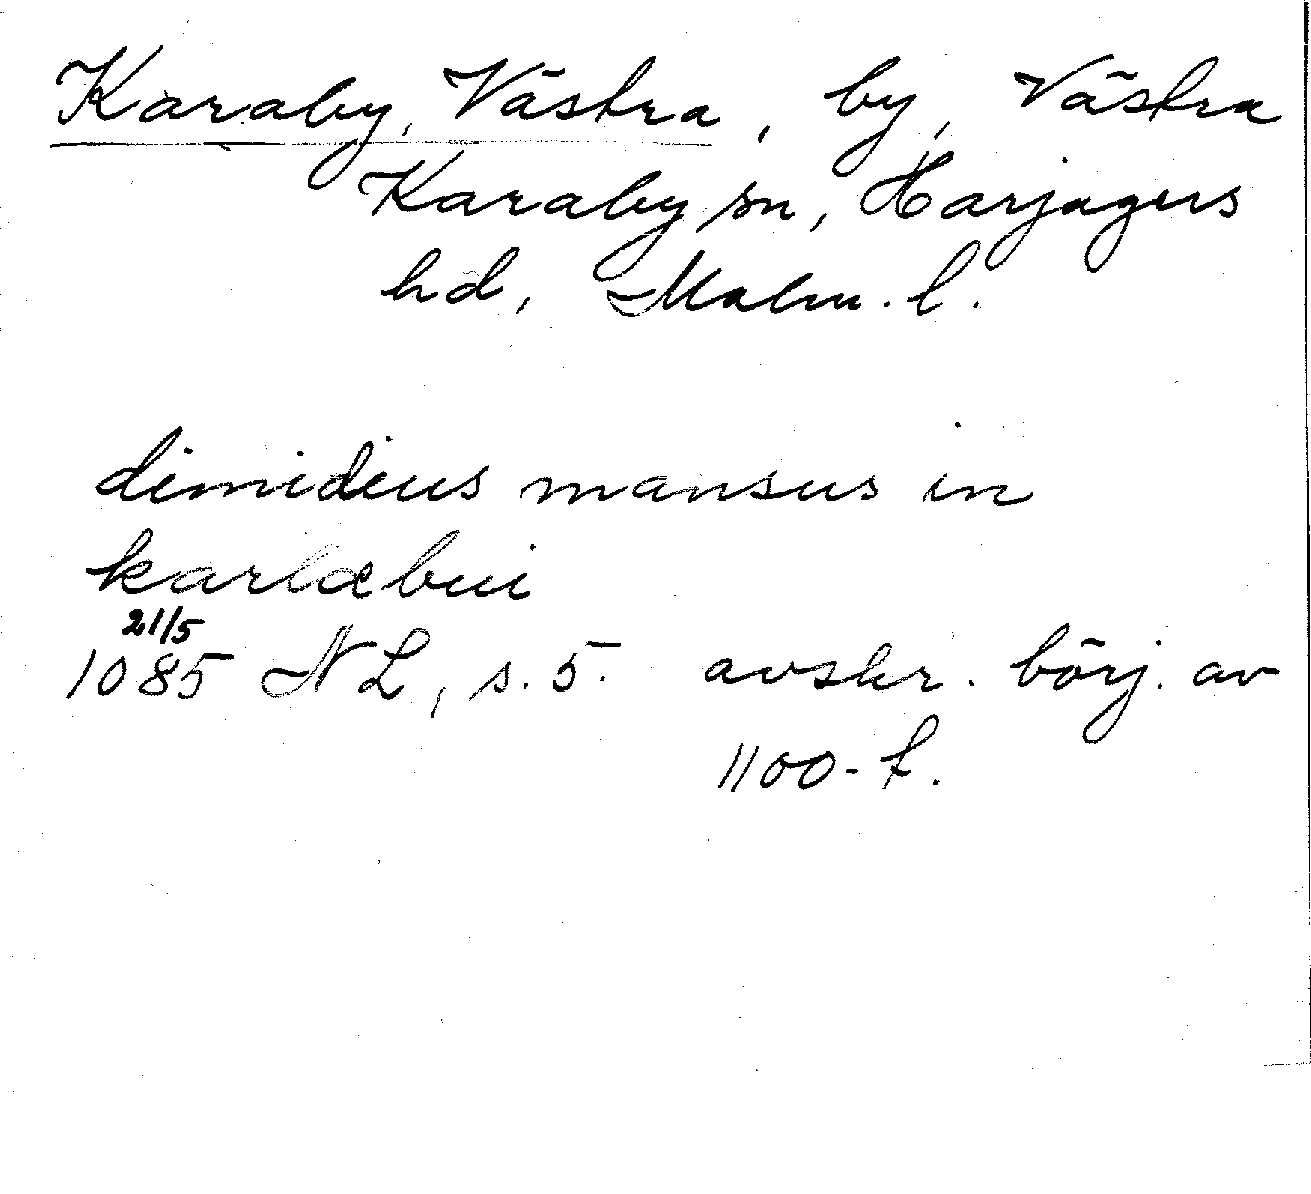 Karaby, Västra, by, Västra
Karaby sn, Harjagers
hd, Malm. l.
dimidius mansus in
karlæbui
21/5
1085 NL, s. 5. avskr. börj. av
1100-t.